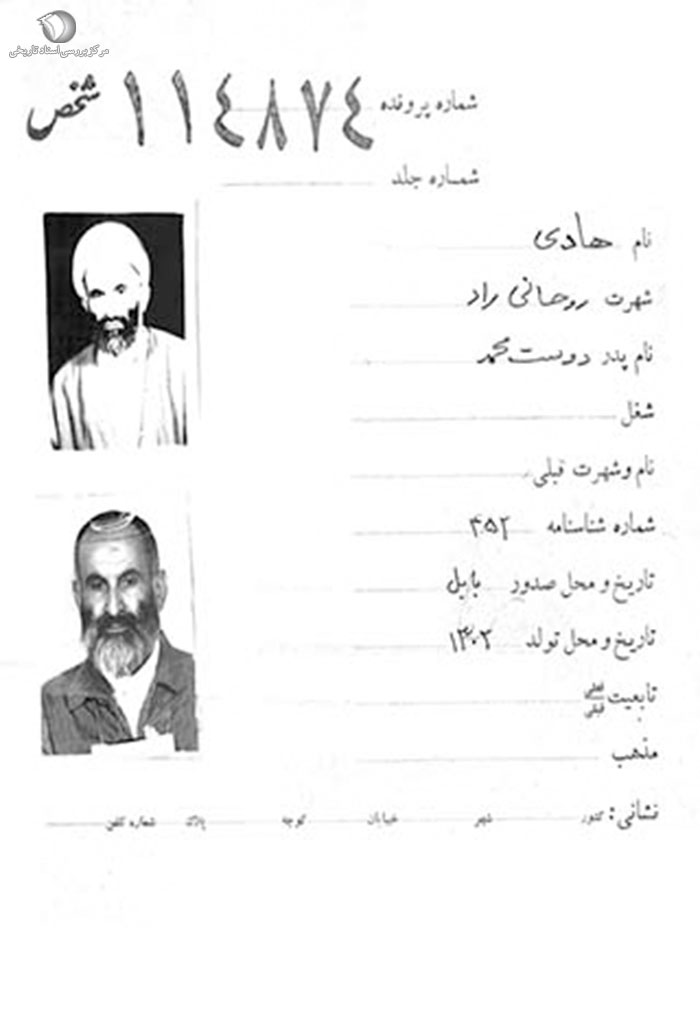 مرکز بررسی اسناد تاریخی
شماره پرونده ۱۱۴۸۷۴ شخص
شماره جلد
نام هادی
شهرت روحانی راد
نام پدر دوست محمد
شغل
نام و شهرت قبلی
شماره شناسنامه ۴۵۲
تاریخ و محل صدور بابل
تاریخ و محل تولد ۱۳۰۲
تابعیت فعلی قبلی
مذهب
نشانی: کشور شهر خیابان کوچه پلاک شماره تلفن